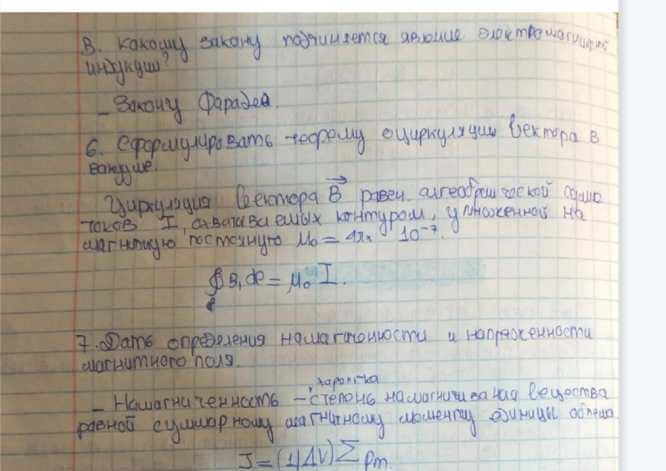 В. Какому закону подчиняется явление электромагнитной
индукции?
– Закону Фарадея.
6. Сформулировать теорему о циркуляции вектора В в
вакууме.
Циркуляция вектора B⃗ равен алгебраической сумме
токов I, охватываемых контуром, умноженной на
магнитную постоянную μ₀ = 4π× 10⁻⁷.
∮ Bₗ dℓ = μ₀ I.
ℓ
7. Дать определения намагниченности и напряженности
магнитного поля.
характ-ка
– Намагниченность – степень намагничивания вещества
равной суммарному магнитному моменту единицы объема
J = (1/ΔV) Σ Pm.